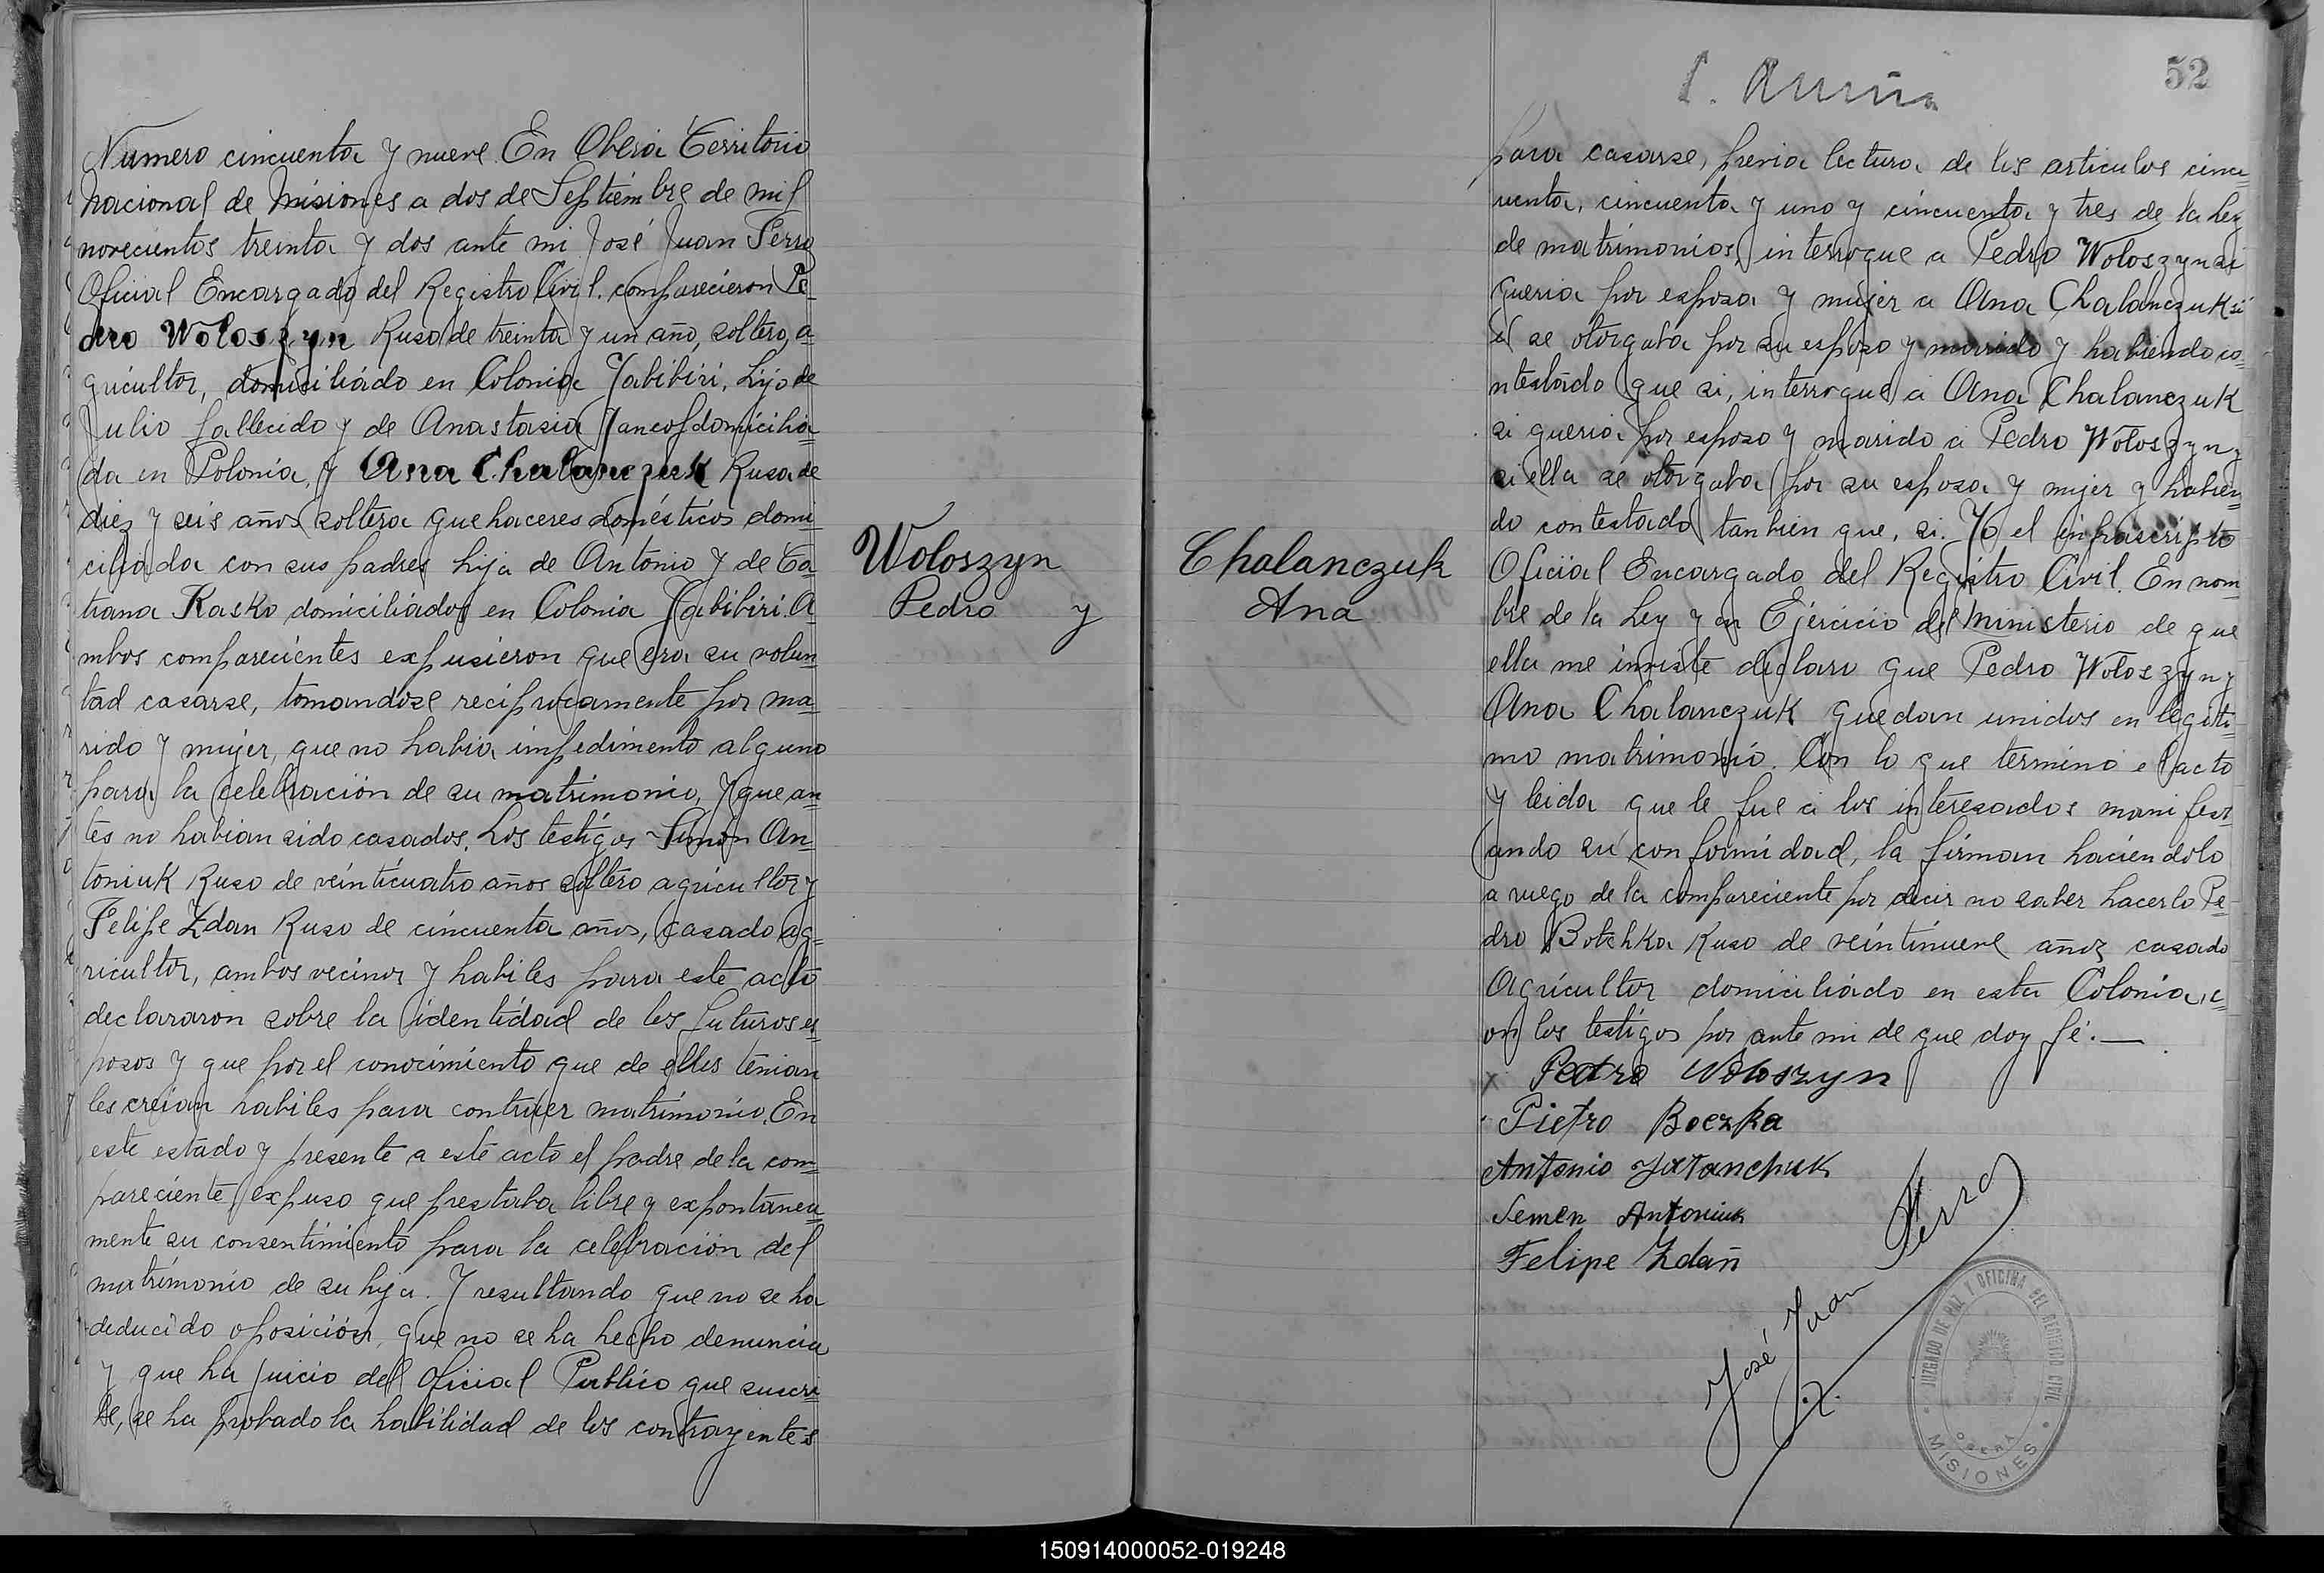 Numero cincuenta y nueve. En Oberá Territorio
Nacional de Misiones a dos de Septiembre de mil
novecientos treinta y dos ante mi José Juan Serra
Oficial Encargado del Registro Civil. comparecieron Pe=
dro Woloszyn Ruso de treinta y un año, soltero, a=
gricultor, domiciliádo en Colonia Yabibiri, hijo de
Julio fallecido y de Anastasia domicilia=
da en Polonia, y Ana Chalanczuk Rusa de
diez y seis años soltera quehaceres domésticos domi=
ciliada con sus padres hija de Antonio y de Ca=
trana Kasko domiciliádos en Colonia Yabibiri. A=
mbos comparecientes expusieron que era su volun=
tad casarse, tomandose reciprocamente por ma=
rido y mujer, que no habia impedimento alguno
para la celebración de su matrimonio, y que an=
tes no habian sido casados. Los testigos Simón An=
toniuk Ruso de veinticuatro años soltero agricultor y
Felipe Zdan Ruso de cincuenta años, casado ag=
ricultor, ambos vecinos y habiles para este acto
declararon sobre la identidad de los futuros es=
posos y que por el conocimiento que de ellos tenian
les creian habiles para contraer matrimonio. En
este estado y presente a este acto el padre de la com=
pareciente expuso que prestaba libre y expontanea=
mente su consentimiento para la celebración del
matrimonio de su hija. Y resultando que no se ha
deducido oposición, que no se ha hecho denuncia
y que ha juicio del Oficial Publico que suscri=
be, se ha probado la habilidad de los contrayentes
Woloszyn
Pedro y
Chalanczuk
Ana
52
para casarse, previa lectura de los articulos cinc=
uenta, cincuenta y uno y cincuenta y tres de la ley
de matrimonios, interrogue a Pedro Woloszyn si
queria por esposa y mujer a Ana Chalanczuk si
el se otorgaba por su esposo y marido y habiendo co=
ntestádo que si, interrogue a Ana Chalanczuk
si queria por esposo y marido a Pedro Woloszyn y
si ella se otorgaba por su esposa y mujer y habien=
do contestado tanbien que, si. Yo el infrascripto
Oficial Encargado del Registro Civil. En nom=
bre de la Ley y en Ejercicio del Ministerio de que
ella me inviste declaro que Pedro Woloszyn y
Ana Chalanczuk quedan unidos en legiti=
mo matrimonio. Con lo que termino el acto
y leida que le fue a los interesados manifest=
ando su conformidad, la firman haciendolo
a ruego de la compareciente por decir no saber hacerlo Pe=
dro Botchka Ruso de veintinueve años casado
Agricultor domiciliádo en esta Colonia, c=
on los testigos por ante mi de que doy fé.—
x Pedro Woloszyn
Pietro Boczka
Antonio
Semen Antoniuk
Felipe Zdañ
José Juan Serra
JUZGADO DE PAZ Y OFICINA DEL REGISTRO CIVIL
OBERA
MISIONES
150914000052-019248